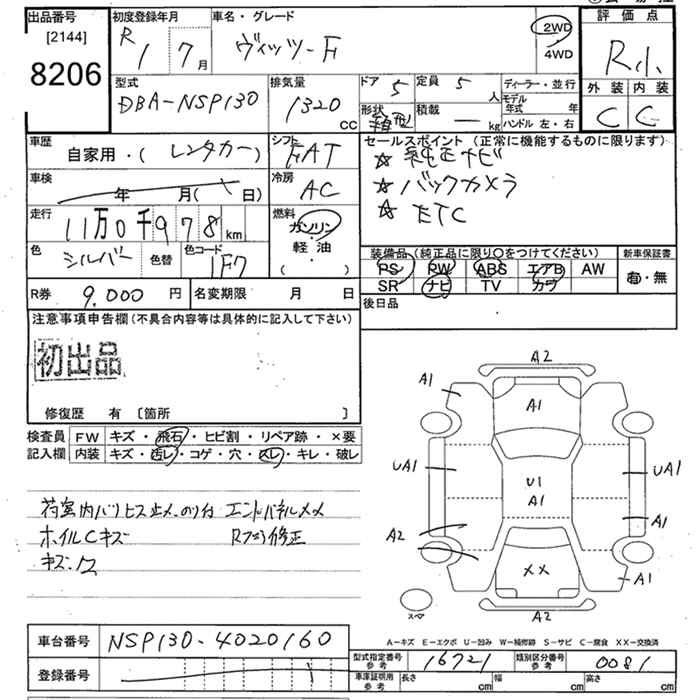 出品番号
[2144]
8206
初度登録年月
R 1 7月
車名・グレード
ヴィッツ-F
2WD
4WD
評価点
R小
外装 内装
C C
型式
DBA-NSP130
排気量
1320 CC
ドア 5
定員 5 人
形状 箱型
積載 — kg
ディーラー・並行
モデル年式 年
ハンドル 左・右
車歴
自家用・(レンタカー)
シフト FAT
セールスポイント(正常に機能するものに限ります)
☆純正ナビ
☆バックカメラ
☆ETC
車検
年 月( 日)
冷房 AC
走行
11万0千978km
燃料
ガソリン
軽油
( )
色 シルバー
色替
色コード 1F7
装備品(純正品に限り○をつけてください)
PS PW ABS エアB AW
SR ナビ TV カワ
新車保証書
有・無
R券 9.000円
名変期限 月 日
後日品
注意事項申告欄(不具合内容等は具体的に記入して下さい)
初出品
修復歴 有 [箇所 ]
検査員記入欄
FW キズ・飛石・ヒビ割・リペア跡・×要
内装 キズ・汚レ・コゲ・穴・スレ・キレ・破レ
荷室内バリヒス止メ、のり付 エンドパネルメメ
ホイルCキズ
修正
キズ・
A2
A1
A1
UA1
U1
A1
UA1
A2
A1
XX
A1
スペア
A2
A-キズ E-エクボ U-凹み W-補修跡 S-サビ C-腐食 XX-交換済
車台番号 NSP130-4020160
登録番号
型式指定番号 参考 16721
類別区分番号 参考 0081
車庫証明用 参考 長さ cm 幅 cm 高さ cm